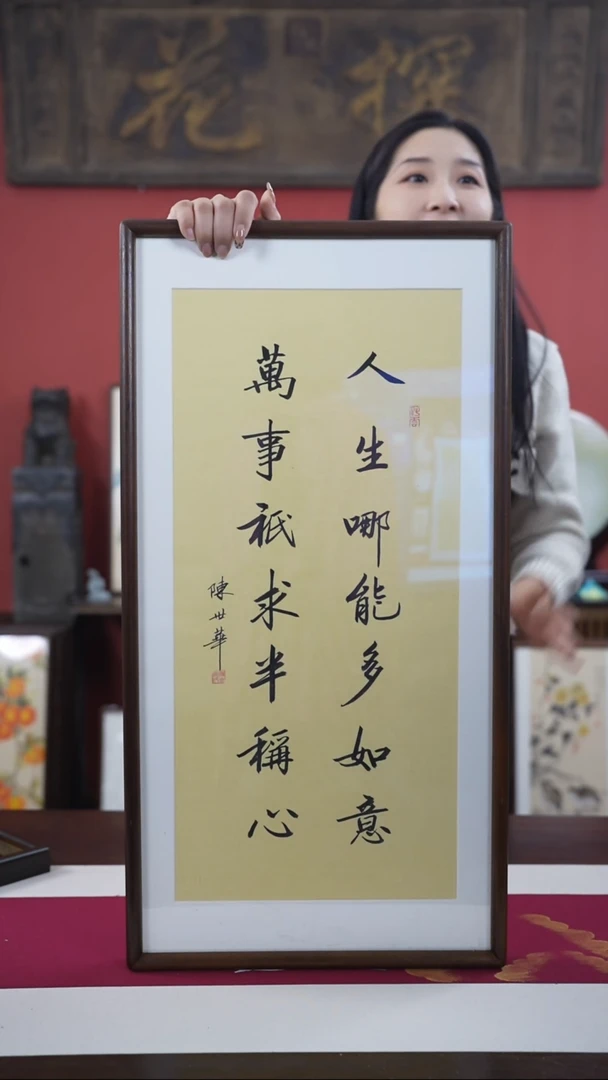 探花
人生哪能多如意
萬事祇求半稱心
陳世華